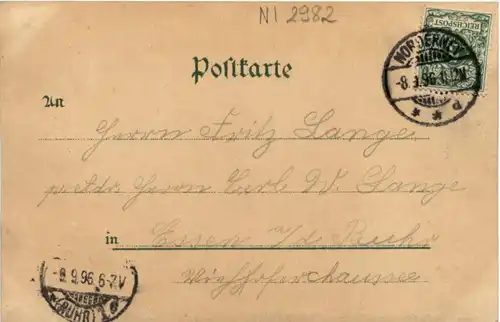 NI 2982
REICHSPOST
NORDERNEY
-8.9.96.6-7N.
Postkarte
An
Herrn Fritz Lange
p. Adr. Herrn Carl W. Lange
in Essen a/d Ruhr
-9.9.96.6-7V
(RUHR) 1 d